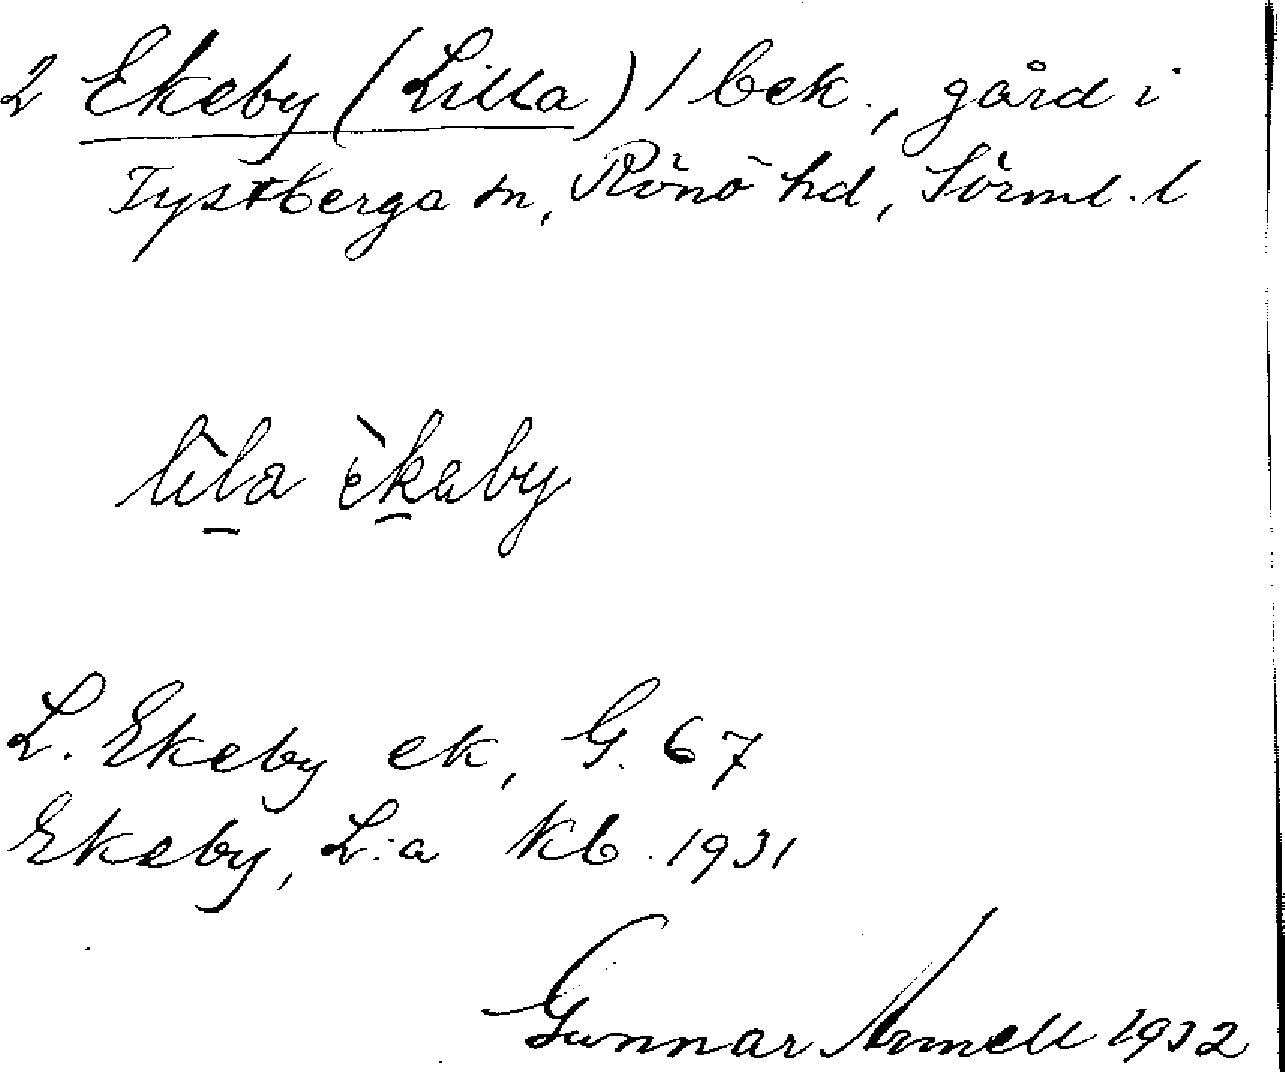 2 Ekeby (Lilla) 1 bek., gård i
Tystberga sn, Rönö hd, Sörml. l
lìla èkaby
L. Ekeby ek, G. 67
Ekeby, L:a kb. 1931
Gunnar 1932